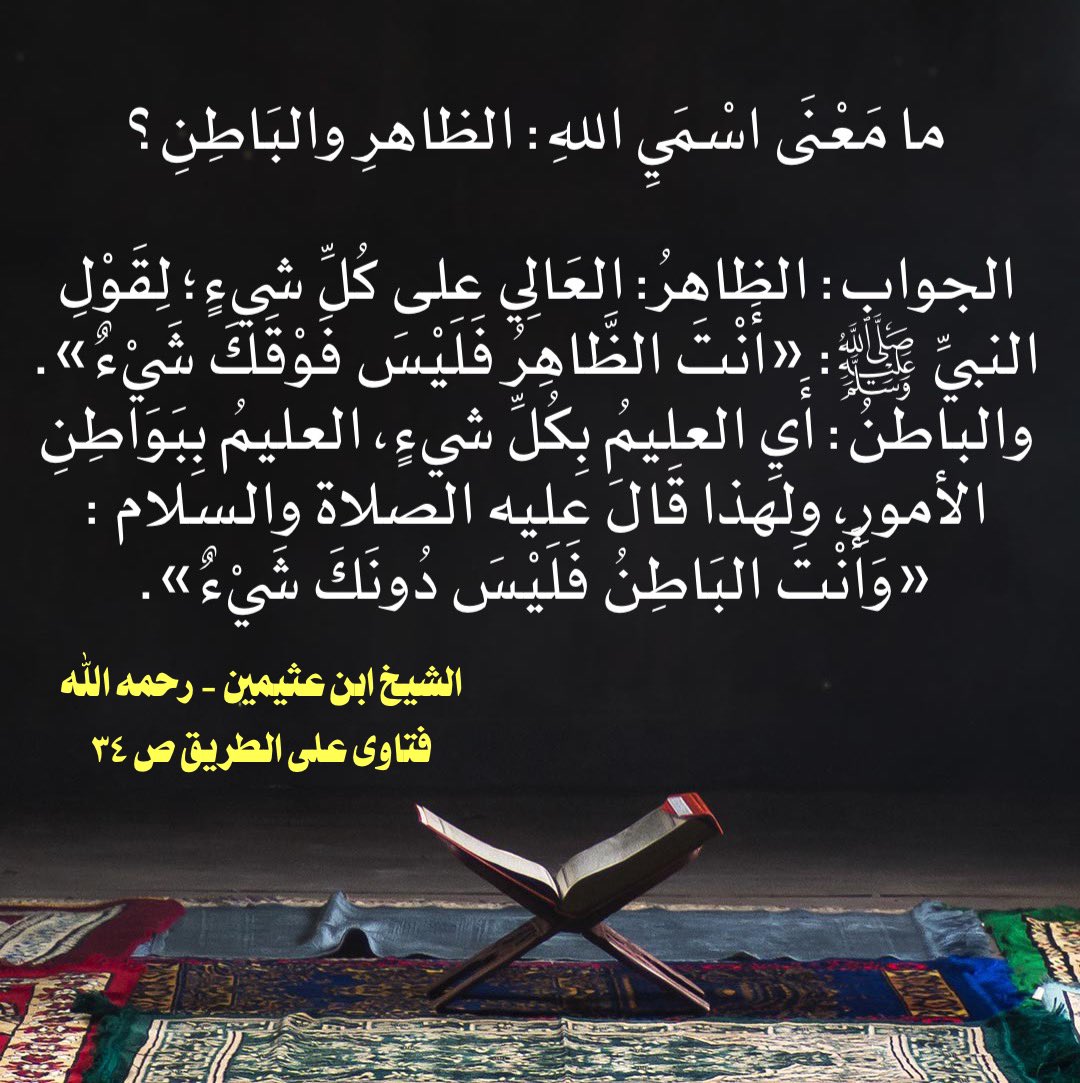 ما مَعْنَى اسْمَيِ اللهِ: الظاهرِ والبَاطِنِ؟
الجواب: الظاهرُ: العَالِي على كُلِّ شيءٍ؛ لِقَوْلِ
النبيِّ ﷺ: «أَنْتَ الظَّاهِرُ فَلَيْسَ فَوْقَكَ شَيْءٌ».
والباطنُ: أَيِ العليمُ بِكُلِّ شيءٍ، العليمُ بِبَوَاطِنِ
الأمورِ، ولهذا قَالَ عليه الصلاة والسلام:
«وَأَنْتَ البَاطِنُ فَلَيْسَ دُونَكَ شَيْءٌ».
الشيخ ابن عثيمين - رحمه الله
فتاوى على الطريق ص ٣٤